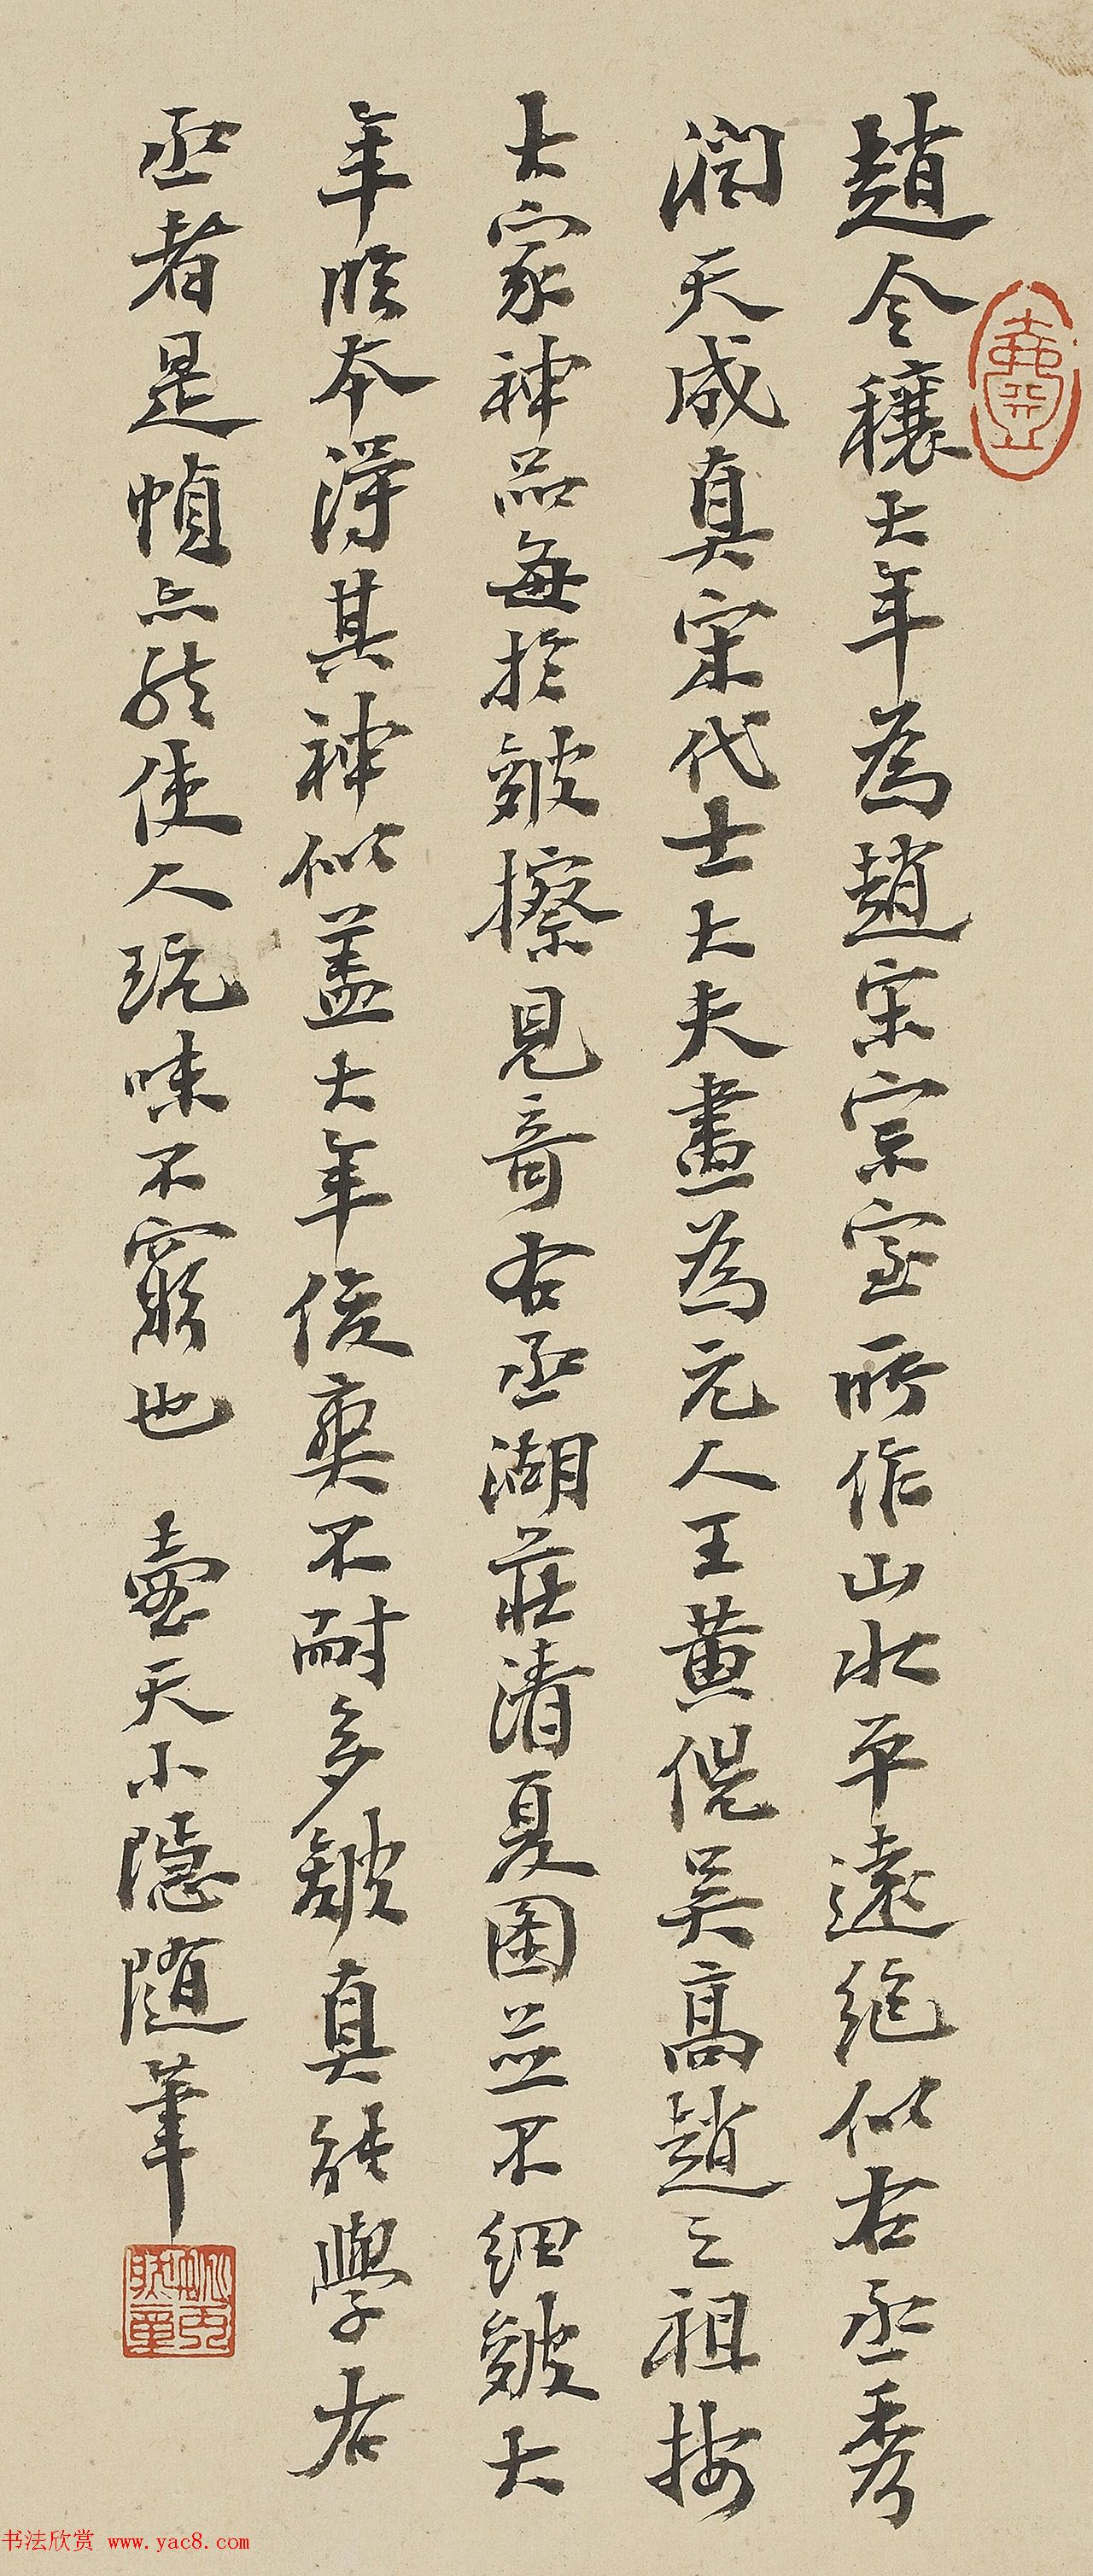 趙令穰大年為趙宋宗室所作山水平遠絕似右丞秀
潤天成真宋代士大夫畫為元人王黄倪吳高趙之祖按
大家神品每於皴擦見奇右丞湖莊清夏圖並不細皴大
年臨本得其神似蓋大年俊爽不耐多皴真能學右
丞者是幀亦能使人玩味不窮也 壷天小隱随筆
书法欣赏 www.yac8.com